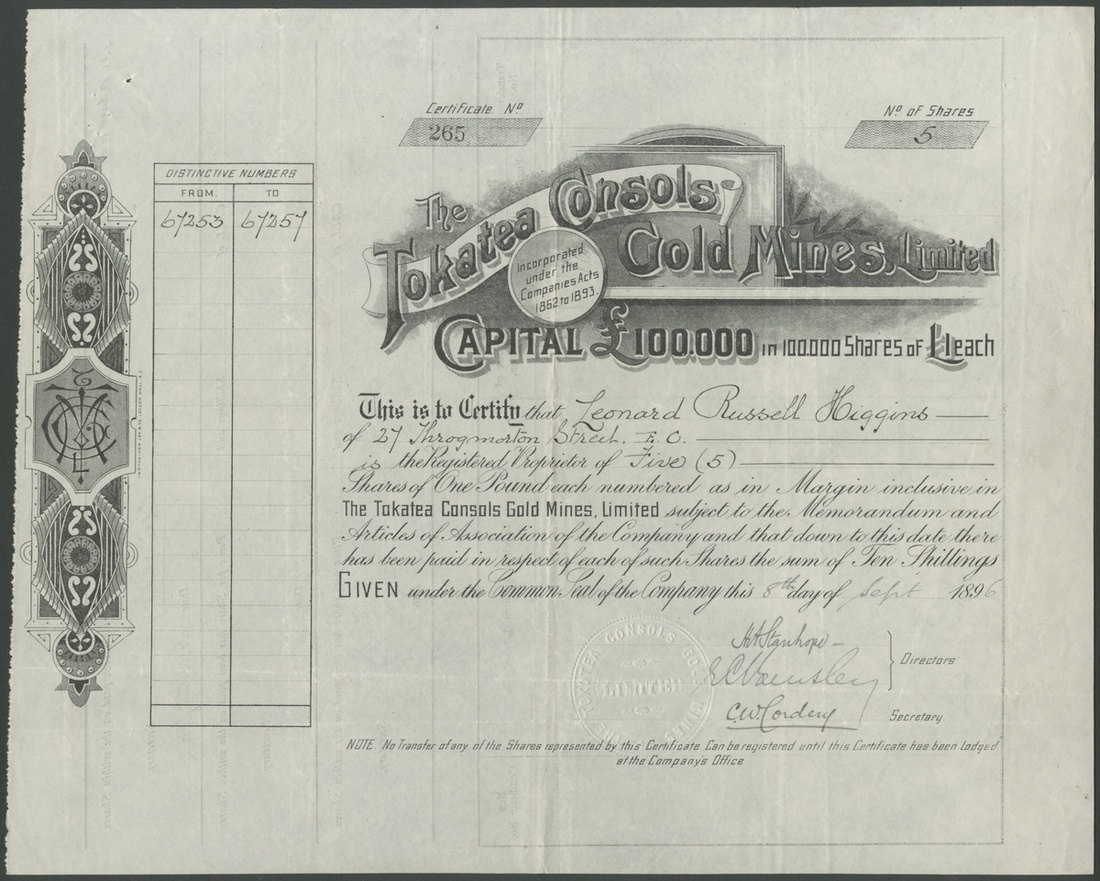 Certificate No
265
No of Shares
5
DISTINCTIVE NUMBERS
FROM. TO
67253 67257
The
Tokatea Consols
Gold Mines, Limited
Incorporated
under the
Companies Acts
1862 to 1893.
CAPITAL £100.000 in 100.000 Shares of £1 each
This is to Certify that Leonard Russell Higgins
of 27 Throgmorton Street. E.C.
is the Registered Proprietor of Five (5)
Shares of One Pound each numbered as in Margin inclusive in
The Tokatea Consols Gold Mines, Limited subject to the Memorandum and
Articles of Association of the Company and that down to this date there
has been paid in respect of each of such Shares the sum of Ten Shillings
GIVEN under the Common Seal of the Company this 8th day of Sept 1896
THE TOKATEA CONSOLS GOLD MINES
LIMITED
Stanhope
Directors
C.W. Cordery
Secretary
NOTE. No Transfer of any of the Shares represented by this Certificate Can be registered until this Certificate has been Lodged
at the Company's Office